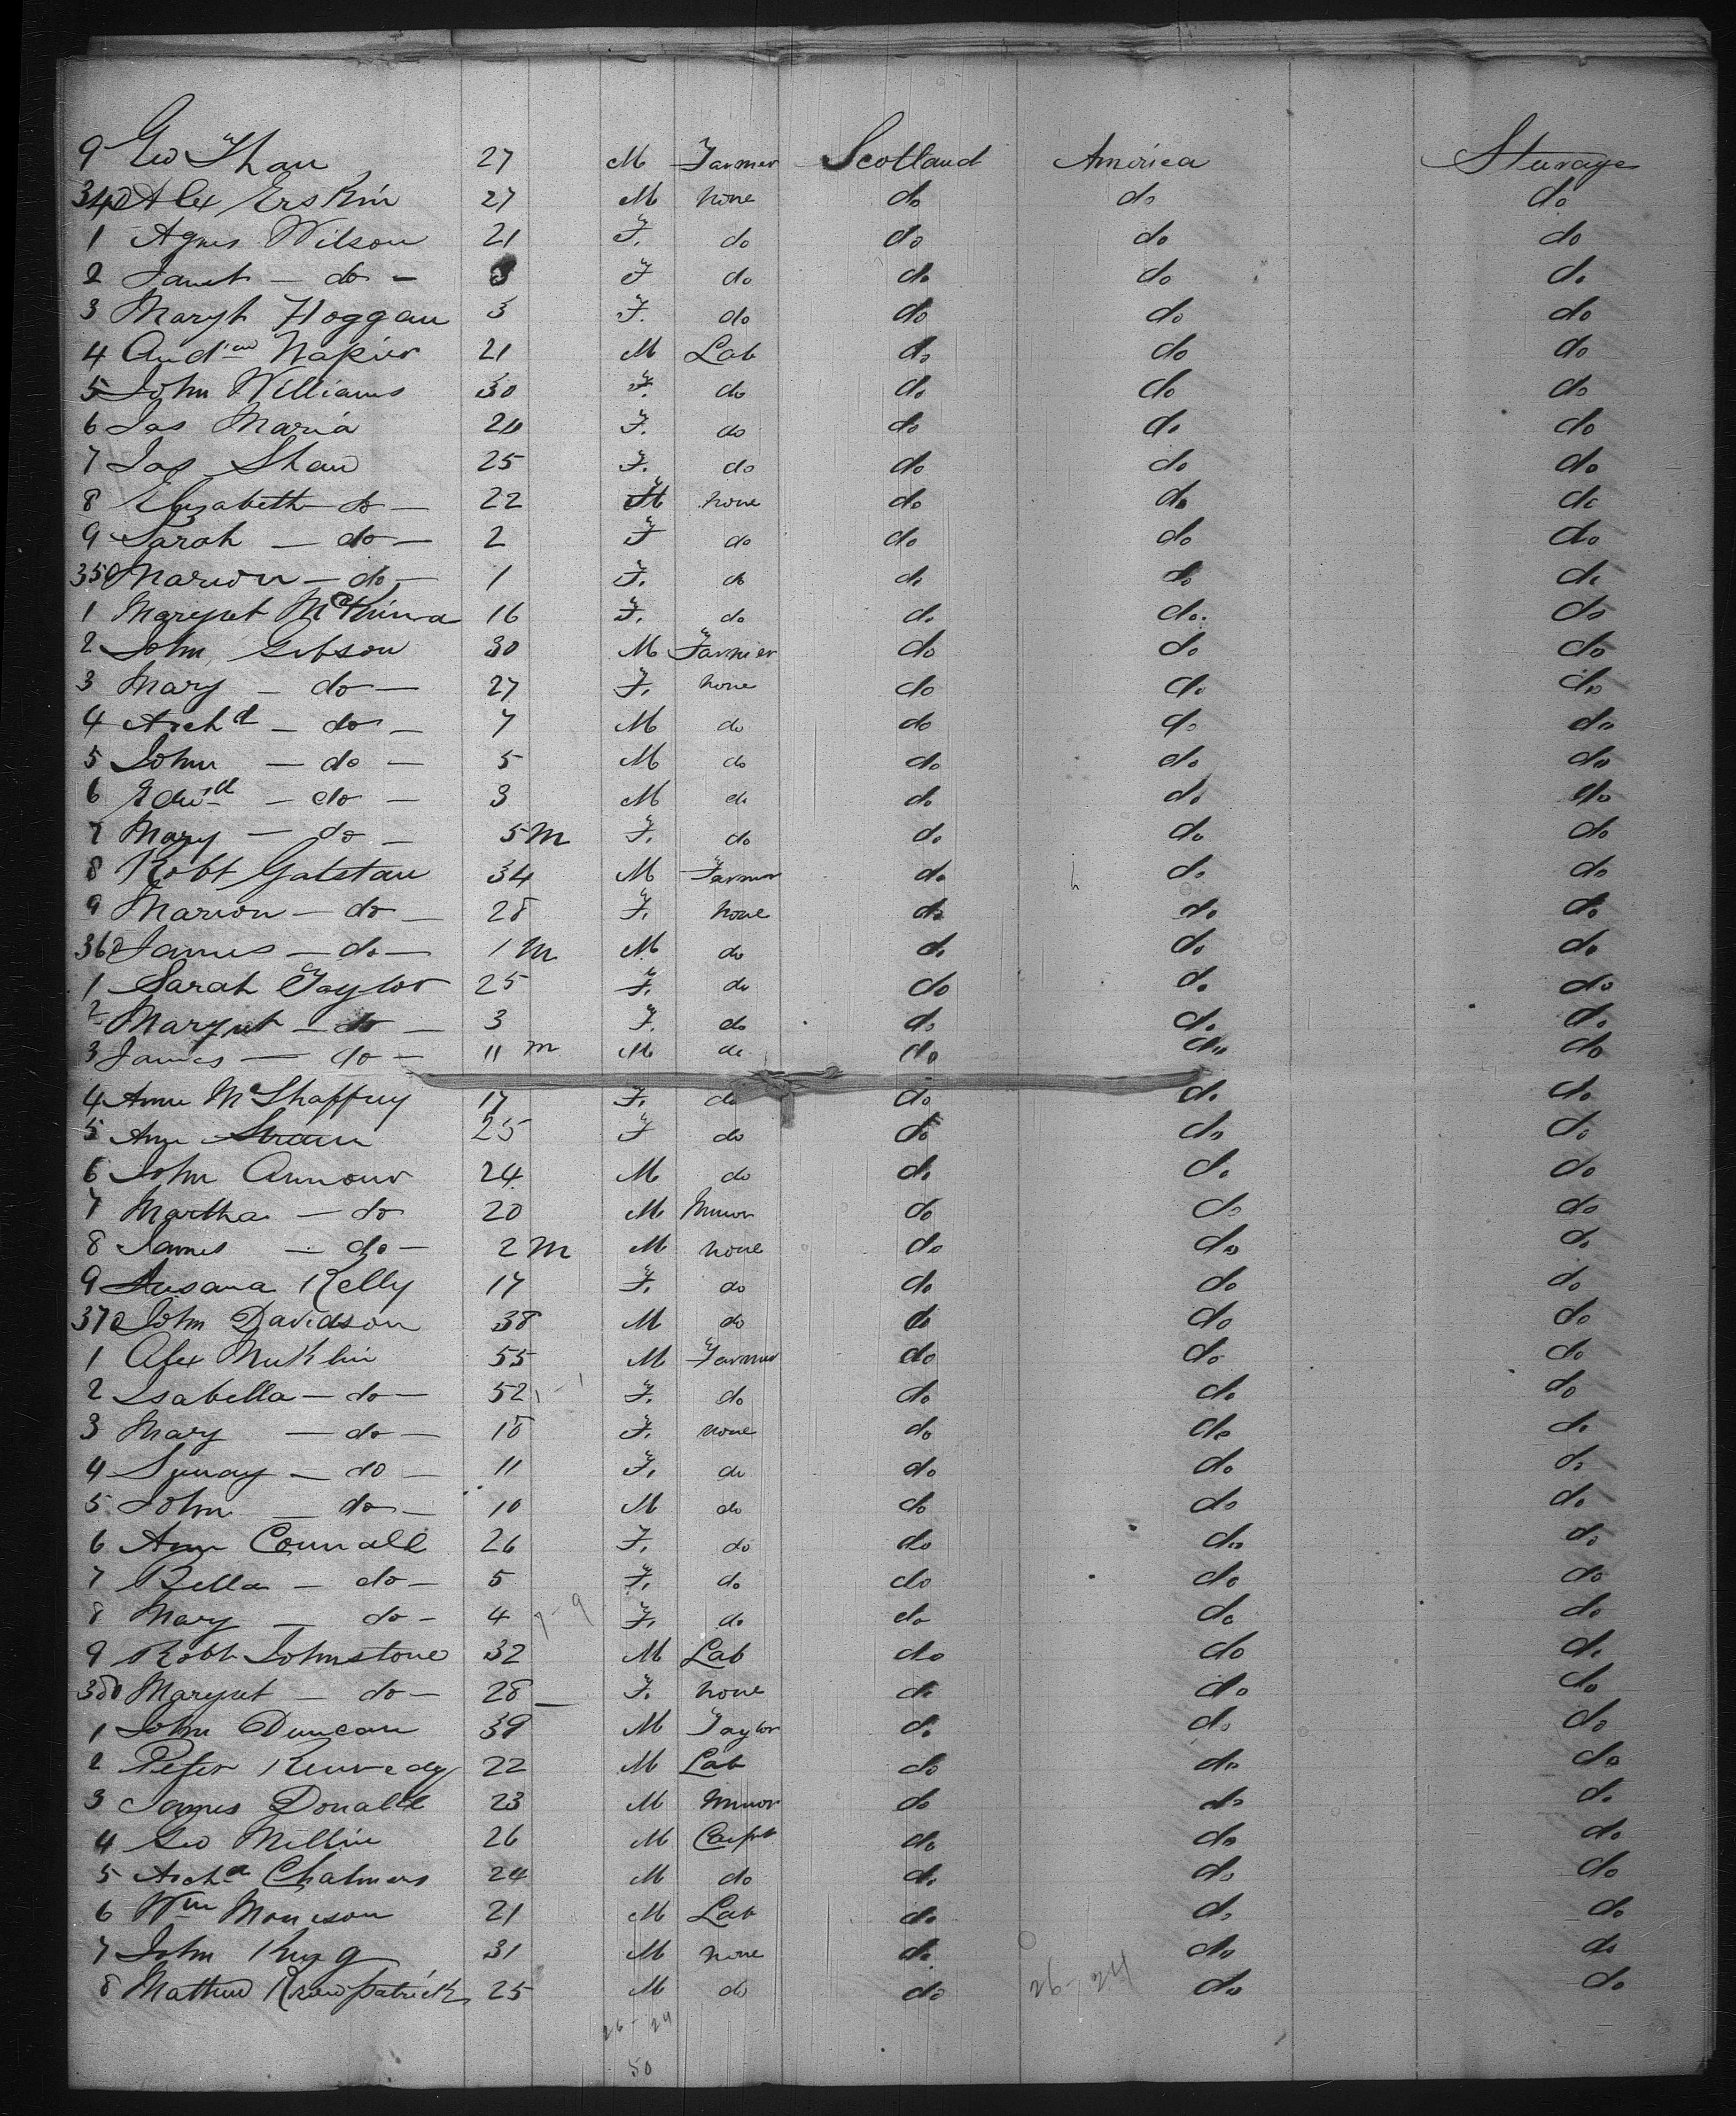 9 Geo Shau 27 M Farmer Scotland America Sturage
340 Alex Erskin 27 M none do do do
1 Agnes Wilson 21 F. do do do do
2 Janet - do - 3 F do do do do
3 Margt Hoggan 3 F. do do do do
4 Andrew Napier 21 M Lab do do do
5 John Williams 30 F. do do do do
6 Jas Maria 20 F. do do do do
7 Jas Shaw 25 F. do do do do
8 Elizabeth do - 22 M none do do do
9 Sarah - do - 2 F do do do do
350 Marion - do - 1 F. do do do do
1 Margret McKinna 16 F. do do do. do
2 John Gibson 30 M Farmer do do do
3 Mary - do - 27 F. none do do do
4 Archd - do - 7 M do do do do
5 John - do - 5 M do do do do
6 Edwd - do - 3 M do do do do
7 Mary - do - 5 m F. do do do do
8 Robt Galstan 34 M Farmer do do do
9 Marion - do - 28 F. none do do do
360 James - do - 1 m M do do do do
1 Sarah Taylor 25 F. do do do do
2 Margret - do - 3 F. do do do do
3 James - do - 11 m M do do do do
4 Ann McShaffrey 17 F. do do do do
5 Ann 25 F do do do do
6 John Armour 24 M do do do do
7 Martha - do 20 M Minor do do do
8 James - do - 2 m M none do do do
9 Susana Kelly 17 F. do do do do
370 John Davidson 38 M do do do do
1 Alex 55 M Farmer do do do
2 Isabella - do - 52 F. do do do do
3 Mary - do - 18 F. none do do do
4 - do - 11 F. do do do do
5 John - do - 10 M do do do do
6 Ann Connall 26 F. do do do do
7 Bella - do - 5 F. do do do do
8 Mary - do - 4 F. do do do do
9 Robt Johnstone 32 M Lab do do do
380 Margret - do - 28 F. none do do do
1 John Duncan 39 M Taylor do do do
2 Peter Kennedy 22 M Lab do do do
3 James Donald 23 M Minor do do do
4 Geo Millin 26 M Carpt do do do
5 Archd Chalmers 24 M do do do do
6 Wm Morrison 21 M Lab do do do
7 John King 31 M none do do do
8 Mathew 25 M do do do do
26 - 24
26 - 24
50